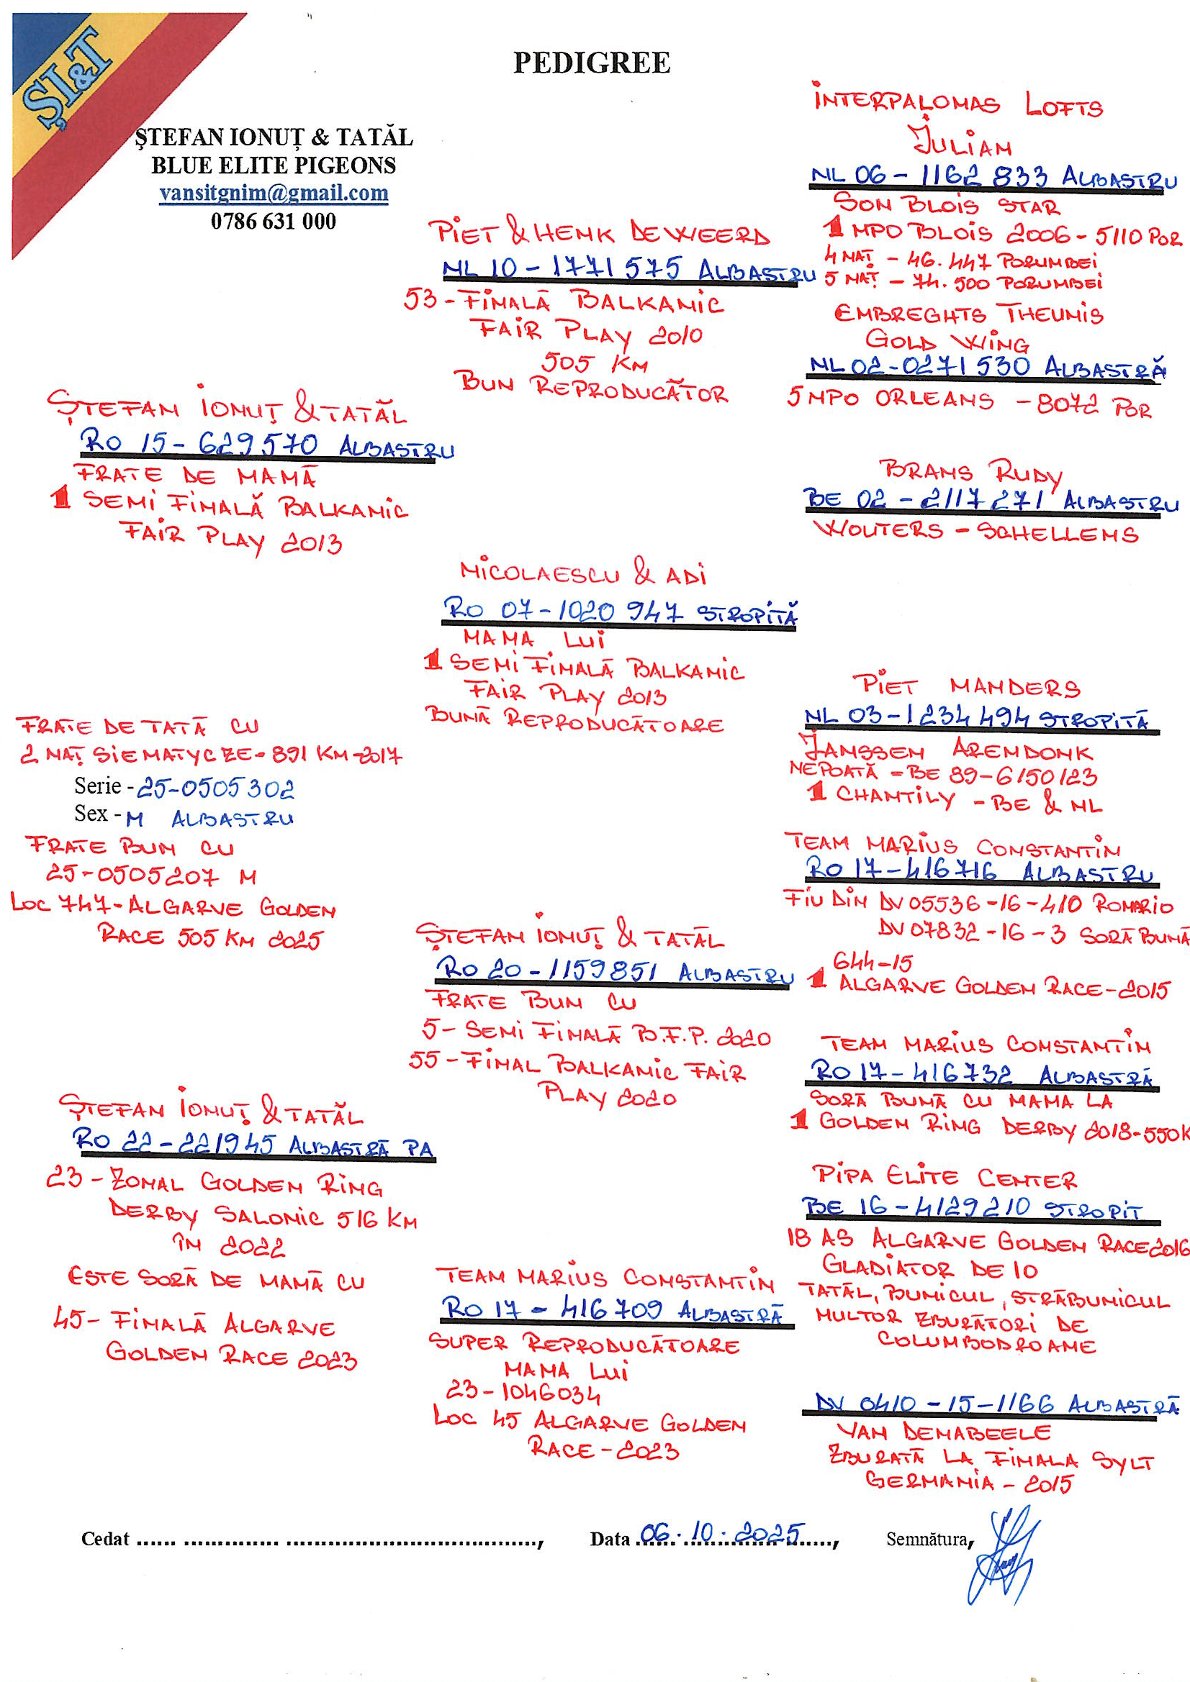 ȘI&T
PEDIGREE
ȘTEFAN IONUȚ & TATĂL
BLUE ELITE PIGEONS
vansitgnim@gmail.com
0786 631 000
INTERPALOMAS LOFTS
JULIAN
NL 06 - 1162 833 ALBASTRU
SON BLOIS STAR
1 NPO BLOIS 2006 - 5110 POR
4 NAȚ - 46.447 PORUMBEI
5 NAȚ - 74.500 PORUMBEI
PIET & HENK DE WEERD
NL 10 - 1771 575 ALBASTRU
53 - FINALĂ BALKANIC
FAIR PLAY 2010
505 KM
BUN REPRODUCĂTOR
EMBREGHTS THEUNIS
GOLD WING
NL 02 - 0271 530 ALBASTRĂ
5 NPO ORLEANS - 8072 POR
ȘTEFAN IONUȚ & TATĂL
RO 15 - 629570 ALBASTRU
FRATE DE MAMĂ
1 SEMI FINALĂ BALKANIC
FAIR PLAY 2013
BRANS RUDY
BE 02 - 2117 271 ALBASTRU
WOUTERS - SCHELLENS
NICOLAESCU & ADI
RO 07 - 1020 947 STROPITĂ
MAMA LUI
1 SEMI FINALĂ BALKANIC
FAIR PLAY 2013
BUNĂ REPRODUCĂTOARE
PIET MANDERS
NL 03 - 1234 494 STROPITĂ
JANSSEN ARENDONK
NEPOATĂ - BE 89 - 6150123
1 CHANTILY - BE & NL
FRATE DE TATĂ CU
2 NAȚ SIEMATYCZE - 891 KM - 2017
Serie - 25-0505302
Sex - M ALBASTRU
FRATE BUN CU
25-0505207 M
LOC 747 - ALGARVE GOLDEN
RACE 505 KM 2025
TEAM MARIUS CONSTANTIN
RO 17 - 416716 ALBASTRU
FIU DIN DV 05536 - 16 - 410 ROMARIO
DV 07832 - 16 - 3 SORĂ BUNĂ
644-15
1 ALGARVE GOLDEN RACE - 2015
ȘTEFAN IONUȚ & TATĂL
RO 20 - 1159851 ALBASTRU
FRATE BUN CU
5 - SEMI FINALĂ B.F.P. 2020
55 - FINAL BALKANIC FAIR
PLAY 2020
TEAM MARIUS CONSTANTIN
RO 17 - 416732 ALBASTRĂ
SORĂ BUNĂ CU MAMA LA
1 GOLDEN RING DERBY 2018 - 550K
ȘTEFAN IONUȚ & TATĂL
RO 22 - 221945 ALBASTRĂ PA
23 - ZONAL GOLDEN RING
DERBY SALONIC 516 KM
ÎN 2022
ESTE SORĂ DE MAMĂ CU
45 - FINALĂ ALGARVE
GOLDEN RACE 2023
PIPA ELITE CENTER
BE 16 - 4129210 STROPIT
18 AS ALGARVE GOLDEN RACE 2016
GLADIATOR DE 10
TATĂL, BUNICUL, STRĂBUNICUL
MULTOR ZBURĂTORI DE
COLUMBODROAME
TEAM MARIUS CONSTANTIN
RO 17 - 416709 ALBASTRĂ
SUPER REPRODUCĂTOARE
MAMA LUI
23 - 1046034
LOC 45 ALGARVE GOLDEN
RACE - 2023
DV 0410 - 15 - 1166 ALBASTRĂ
VAN DENABEELE
ZBURATĂ LA FINALA SYLT
GERMANIA - 2015
Cedat ...... .............. ....................................,
Data 06.10.2025,
Semnătura,